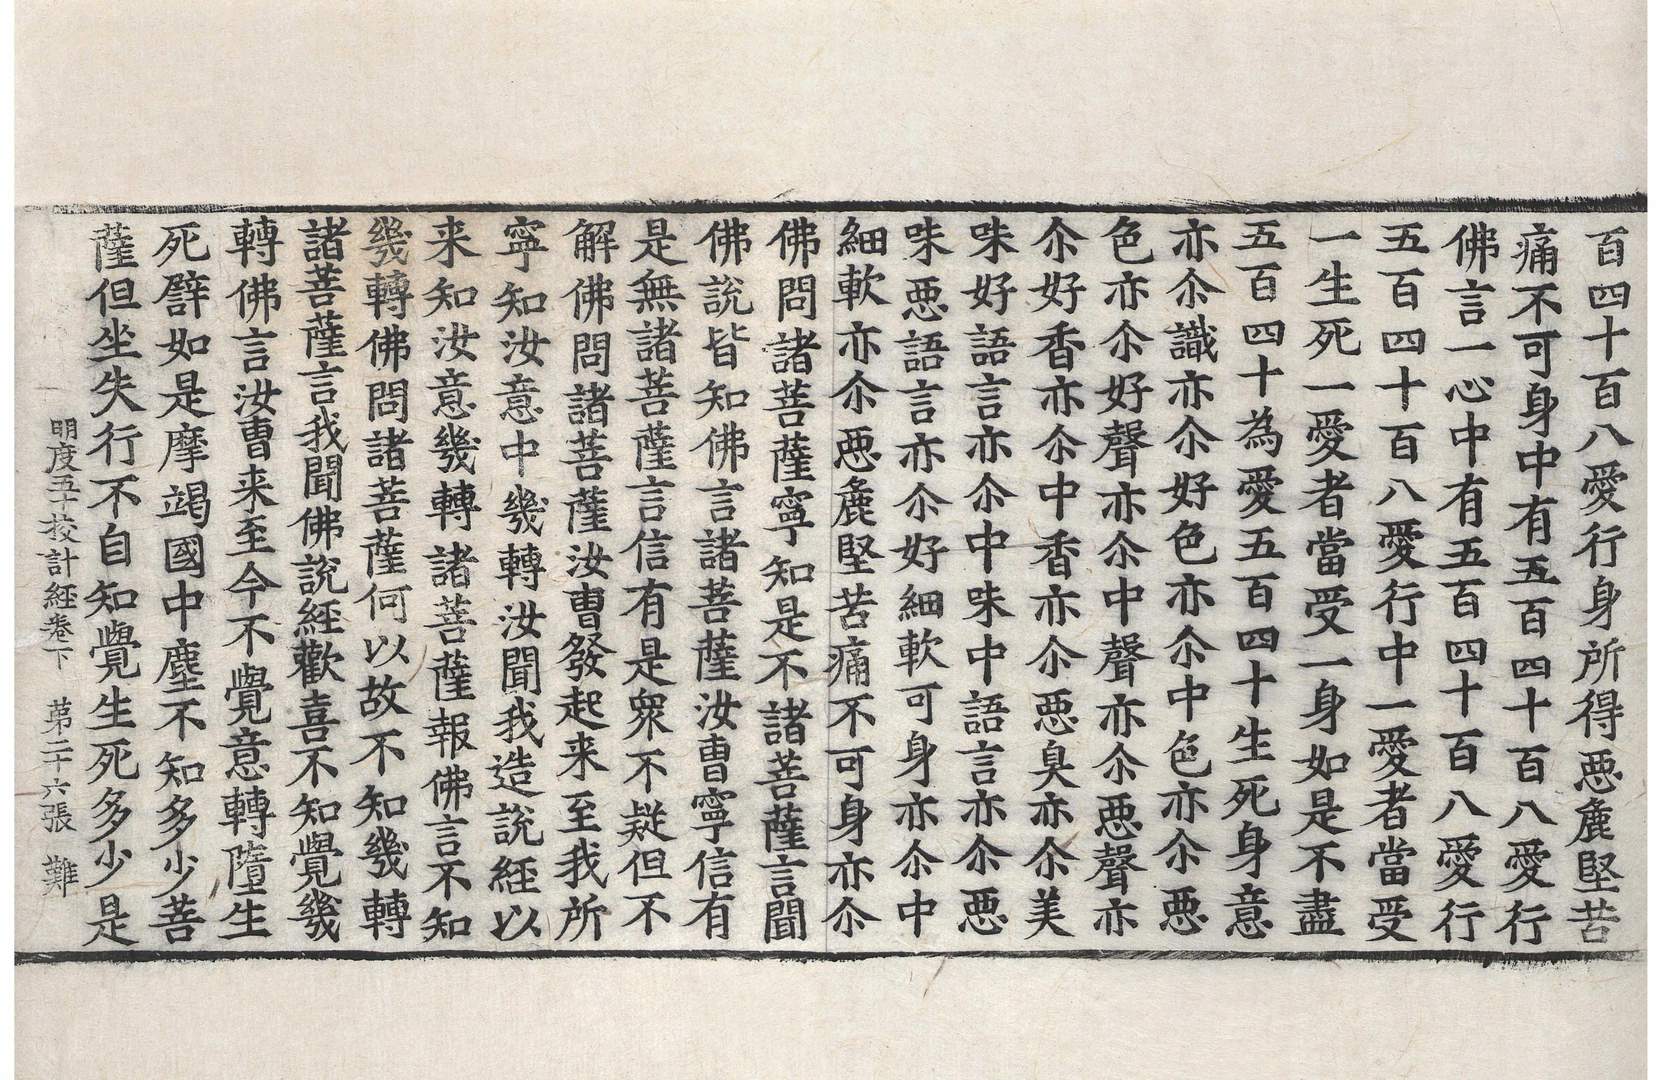 百四十百八愛行身所得惡麁堅苦
痛不可身中有五百四十百八愛行
佛言一心中有五百四十百八愛行
五百四十百八愛行中一愛者當受
一生死一愛者當受一身如是不盡
五百四十為愛五百四十生死身意
亦尒識亦尒好色亦尒中色亦尒惡
色亦尒好聲亦尒中聲亦尒惡聲亦
尒好香亦尒中香亦尒惡臭亦尒美
味好語言亦尒中味中語言亦尒惡
味惡語言亦尒好細軟可身亦尒中
細軟亦尒惡麁堅苦痛不可身亦尒
佛問諸菩薩寧知是不諸菩薩言聞
佛說皆知佛言諸菩薩汝曹寧信有
是無諸菩薩言信有是衆不疑但不
解佛問諸菩薩汝曹發起来至我所
寧知汝意中幾轉汝聞我造說經以
来知汝意幾轉諸菩薩報佛言不知
幾轉佛問諸菩薩何以故不知幾轉
諸菩薩言我聞佛說經歡喜不知覺幾
轉佛言汝曹来至今不覺意轉墮生
死譬如是摩竭國中塵不知多少菩
薩但坐失行不自知覺生死多少是
明度五十挍計經卷下　第二十六張　難